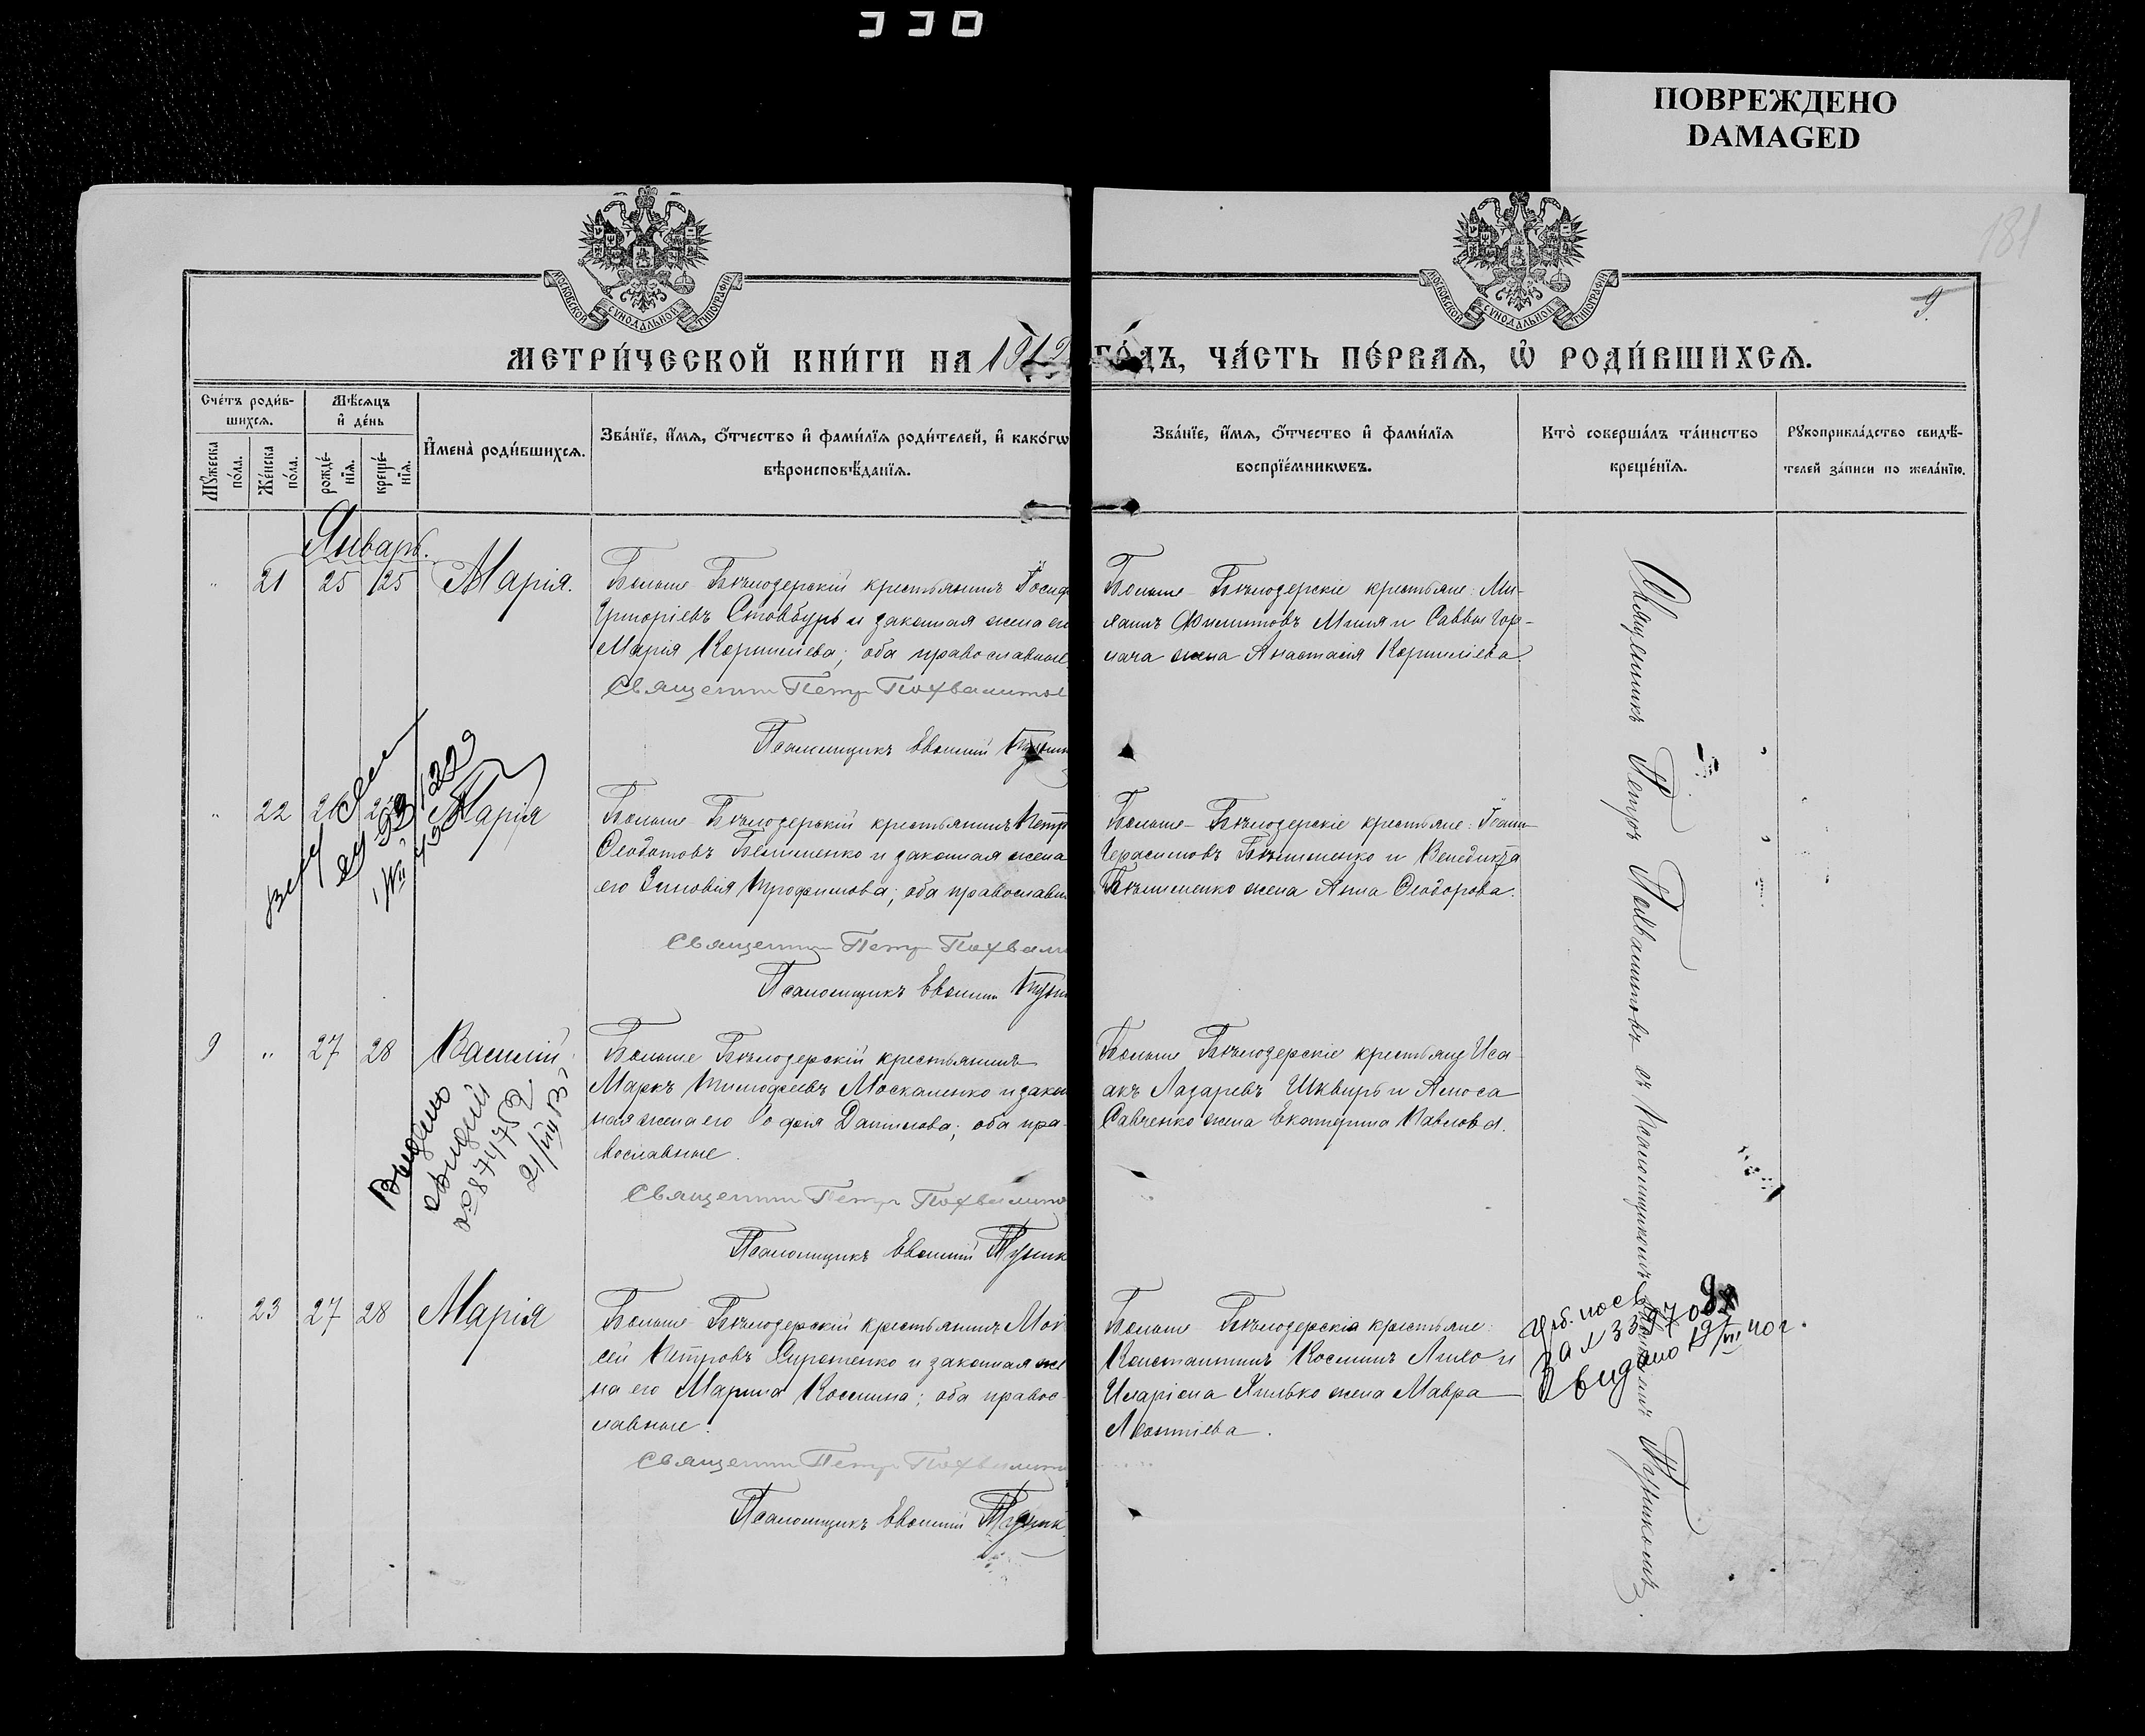 330
ПОВРЕЖДЕНО
DAMAGED
181
9.
МОСКОВСКОЙ СѴНОДАЛЬНОЙ ТИПОГРАФІИ
МОСКОВСКОЙ СѴНОДАЛЬНОЙ ТИПОГРАФІИ
МЕТРИ́ЧЕСКОЙ КНИ́ГИ НА 1912 ГО́ДЪ, ЧА́СТЬ ПЕ́РВАѦ, Ѡ҆ РОДИ́ВШИХСѦ.
Сче́тъ роди́в-
шихсѧ.
Мꙋ́жеска по́ла.
Же́нска по́ла.
Мѣ́сѧцъ
и҆ де́нь
рожде́-
нїѧ.
креще́-
нїѧ.
И҆мена̀ роди́вшихсѧ.
Зва́нїе, и҆́мѧ, ѻ҆́тчество и҆ фами́лїѧ роди́телей, и҆ како́гѡ
вѣроисповѣ́данїѧ.
Зва́нїе, и҆́мѧ, ѻ҆́тчество и҆ фами́лїѧ
воспрїе́мникѡвъ.
Кто̀ соверша́лъ та́инство
креще́нїѧ.
Рꙋкоприкла́дство свидѣ́-
телей за́писи по жела́нїю.
Январь.
„ 21 25 25 Марія.
Больше Бѣлозерскій крестьянинъ Іосиф
Григоріевъ Стовбуръ и законная жена его
Марія Корниліева; оба православные
Священник Петр Похвалитов
Псаломщикъ Евгеній
Больше-Бѣлозерскіе крестьяне: Ми-
лачa жена Анастасія Корниліева.
„ 22 26 Марія
Больше Бѣлозерскій крестьянинъ Петр
Ѳедотовъ Бѣлименко и законная жена
его Зиновія Трофимова; оба православн
Священник Петр Похвали
Псаломщикъ Евгеній
Больше-Бѣлозерскіе крестьяне: Іоанн
Герасимовъ Бѣлименко и Венедикта
Бѣлименко жена Анна Ѳеодорова.
9 „ 27 28 Василій
Больше Бѣлозерскій крестьянинъ
Маркъ Тимофеевъ Москаленко и закон
ная жена его Софія Данилова; оба пра-
вославные.
Священник Петр Похвалито
Псаломщикъ Евгеній
Больше Бѣлозерскіе крестьяне Иса
акъ Лазаревъ Шквиръ и Амоса
Савченко жена Екатерина Павлова.
Выдано
21/VIII
„ 23 27 28 Марія
Больше Бѣлозерскій крестьянинъ Мои
сей Петровъ Сиротенко и законная же
на его Марина Космина; оба правос-
лавные.
Священник Петр Похвалито
Псаломщикъ Евгеній
Больше Бѣлозерскіе крестьяне:
Константинъ Косминъ Лихо и
Иларіона Ямько жена Мавра
Леонтіева.
Священникъ Петръ Похвалитовъ съ Псаломщикомъ